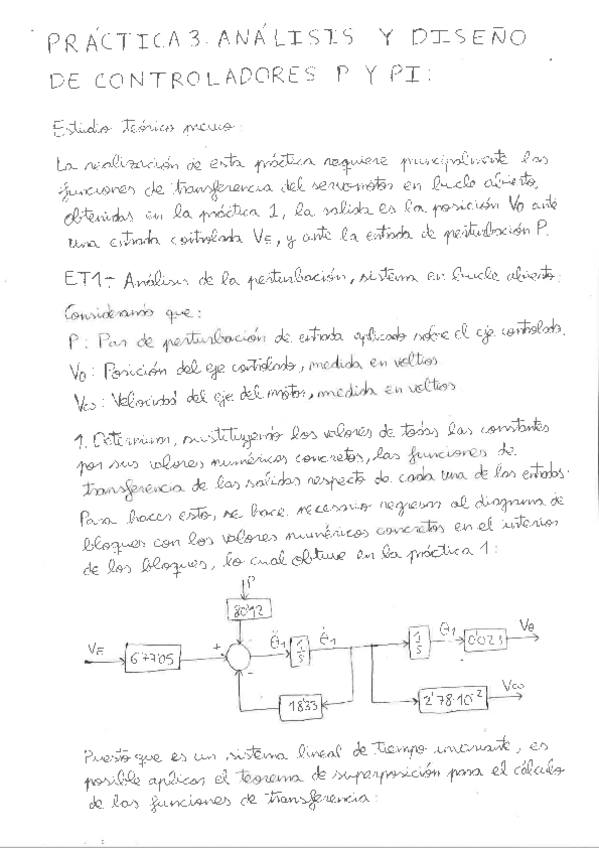 PRÁCTICA 3. ANÁLISIS Y DISEÑO
DE CONTROLADORES P Y PI:
Estudio teórico previo:
La realización de esta práctica requiere principalmente las
funciones de transferencia del servomotor en bucle abierto,
obtenidas en la práctica 1, la salida es la posición Vθ ante
una entrada controlada VE, y ante la entrada de perturbación P.
ET1- Análisis de la perturbación, sistema en bucle abierto:
Consideramos que:
P: Par de perturbación de entrada aplicado sobre el eje controlado.
Vθ: Posición del eje controlado, medida en voltios
Vω: Velocidad del eje del motor, medida en voltios
1. Determinar, sustituyendo los valores de todas las constantes
por sus valores numéricos concretos, las funciones de
transferencia de las salidas respecto de cada una de las entradas.
Para hacer esto, se hace necesario regresar al diagrama de
bloques con los valores numéricos concretos en el interior
de los bloques, lo cual obtuve en la práctica 1:
P
80'12
VE
677'05
+
-
θ̈1
1/s
θ̇1
1/s
θ1
0'023
Vθ
18'33
2'78·10⁻²
Vω
Puesto que es un sistema lineal de tiempo invariante, es
posible aplicar el teorema de superposición para el cálculo
de las funciones de transferencia: